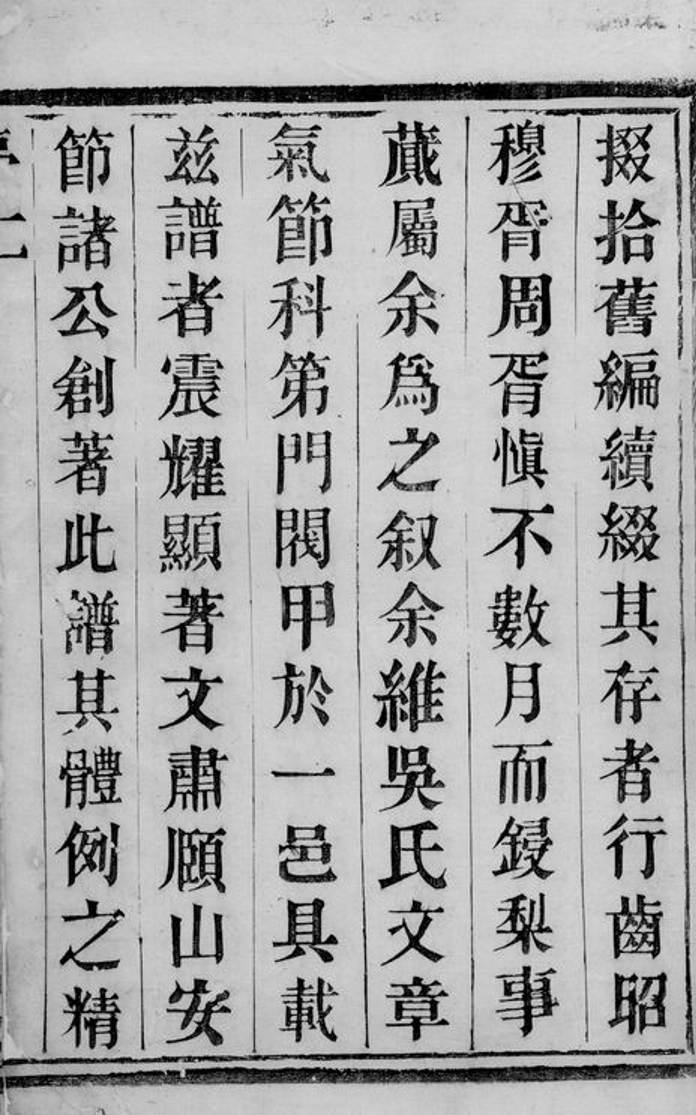 掇拾舊編續綴其存者行齒昭
穆胥周胥愼不數月而鋟梨事
蕆屬余爲之叙余維吳氏文章
氣節科第門閥甲於一邑具載
兹譜者震耀顯著文肅頤山安
節諸公創著此譜其體例之精